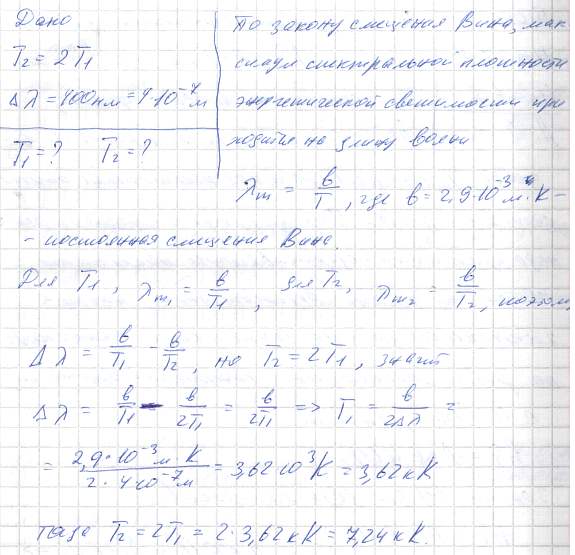 Дано
T₂ = 2T₁
Δλ = 400нм = 4·10⁻⁷м
T₁ = ? T₂ = ?
По закону смещения Вина, мак
симум спектральной плотности
энергетической светимости при
ходится на длину волны
λm = в/T, где в = 2,9·10⁻³ м·К –
- постоянная смещения Вина.
Для T₁, λm₁ = в/T₁, для T₂, λm₂ = в/T₂, поэтом
Δλ = в/T₁ - в/T₂, но T₂ = 2T₁, значит
Δλ = в/T₁ - в/2T₁ = в/2T₁ => T₁ = в/2Δλ =
= 2,9·10⁻³ м·К / 2·4·10⁻⁷м = 3,62·10³К = 3,62кК
тогда T₂ = 2T₁ = 2·3,62кК = 7,24кК.